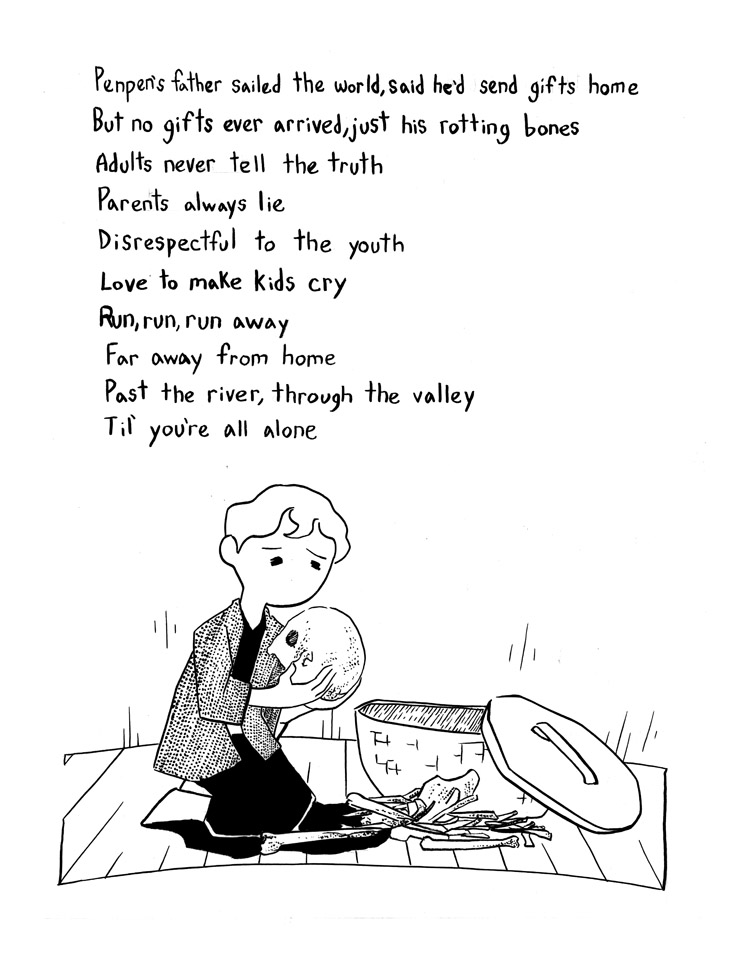 Penpen's father sailed the world, said he'd send gifts home
But no gifts ever arrived, just his rotting bones
Adults never tell the truth
Parents always lie
Disrespectful to the youth
Love to make kids cry
Run, run, run away
Far away from home
Past the river, through the valley
Til' you're all alone